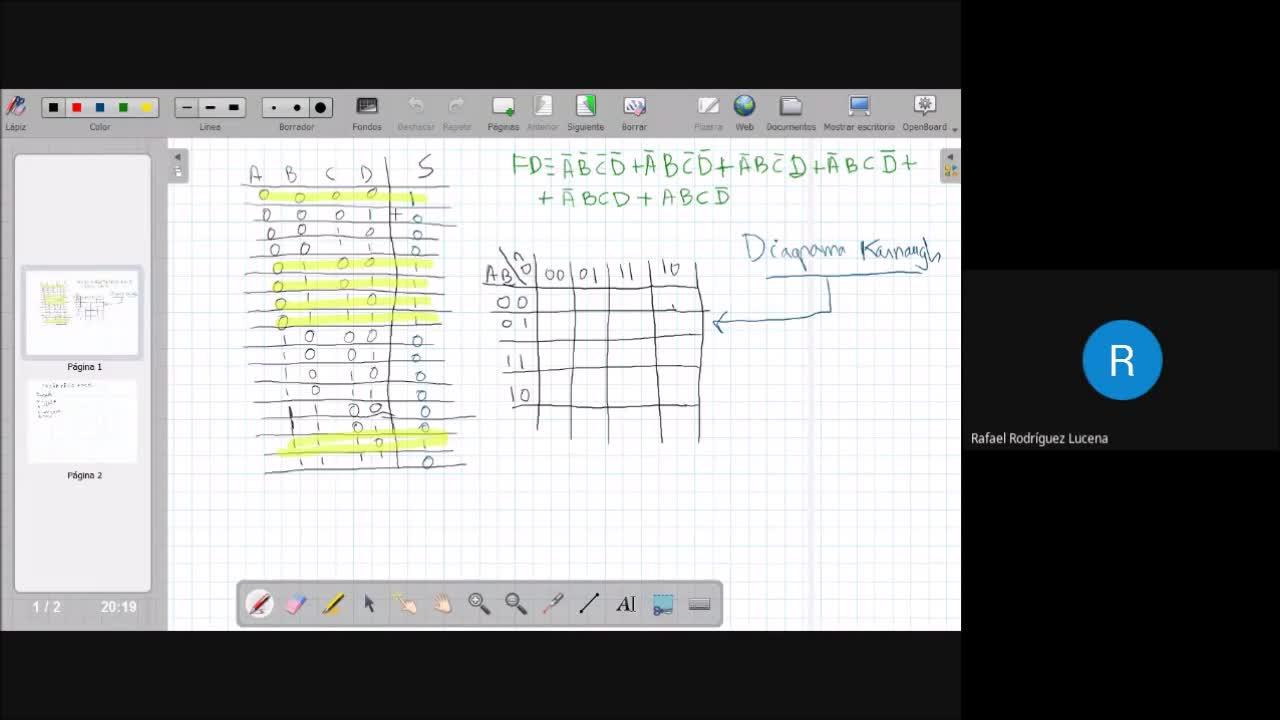 Lápiz Color Línea Borrador Fondos Deshacer Repetir Páginas Anterior Siguiente Borrar Pizarra Web Documentos Mostrar escritorio OpenBoard
A B C D S
0 0 0 0 1
0 0 0 1 0
0 0 1 0 0
0 0 1 1 0
0 1 0 0 1
0 1 0 1 1
0 1 1 0 1
0 1 1 1 1
1 0 0 0 0
1 0 0 1 0
1 0 1 0 0
1 0 1 1 0
1 1 0 0 0
1 1 0 1 0
1 1 1 0 1
1 1 1 1 0
FD= A̅ B̅ C̅ D̅ + A̅ B C̅ D̅ + A̅ B C̅ D + A̅ B C D̅ +
+ A̅ B C D + A B C D̅
Diagrama Karnaugh
AB\CD 00 01 11 10
00
01
11
10
Página 1
Página 2
1 / 2 20:19
AI
R
Rafael Rodríguez Lucena